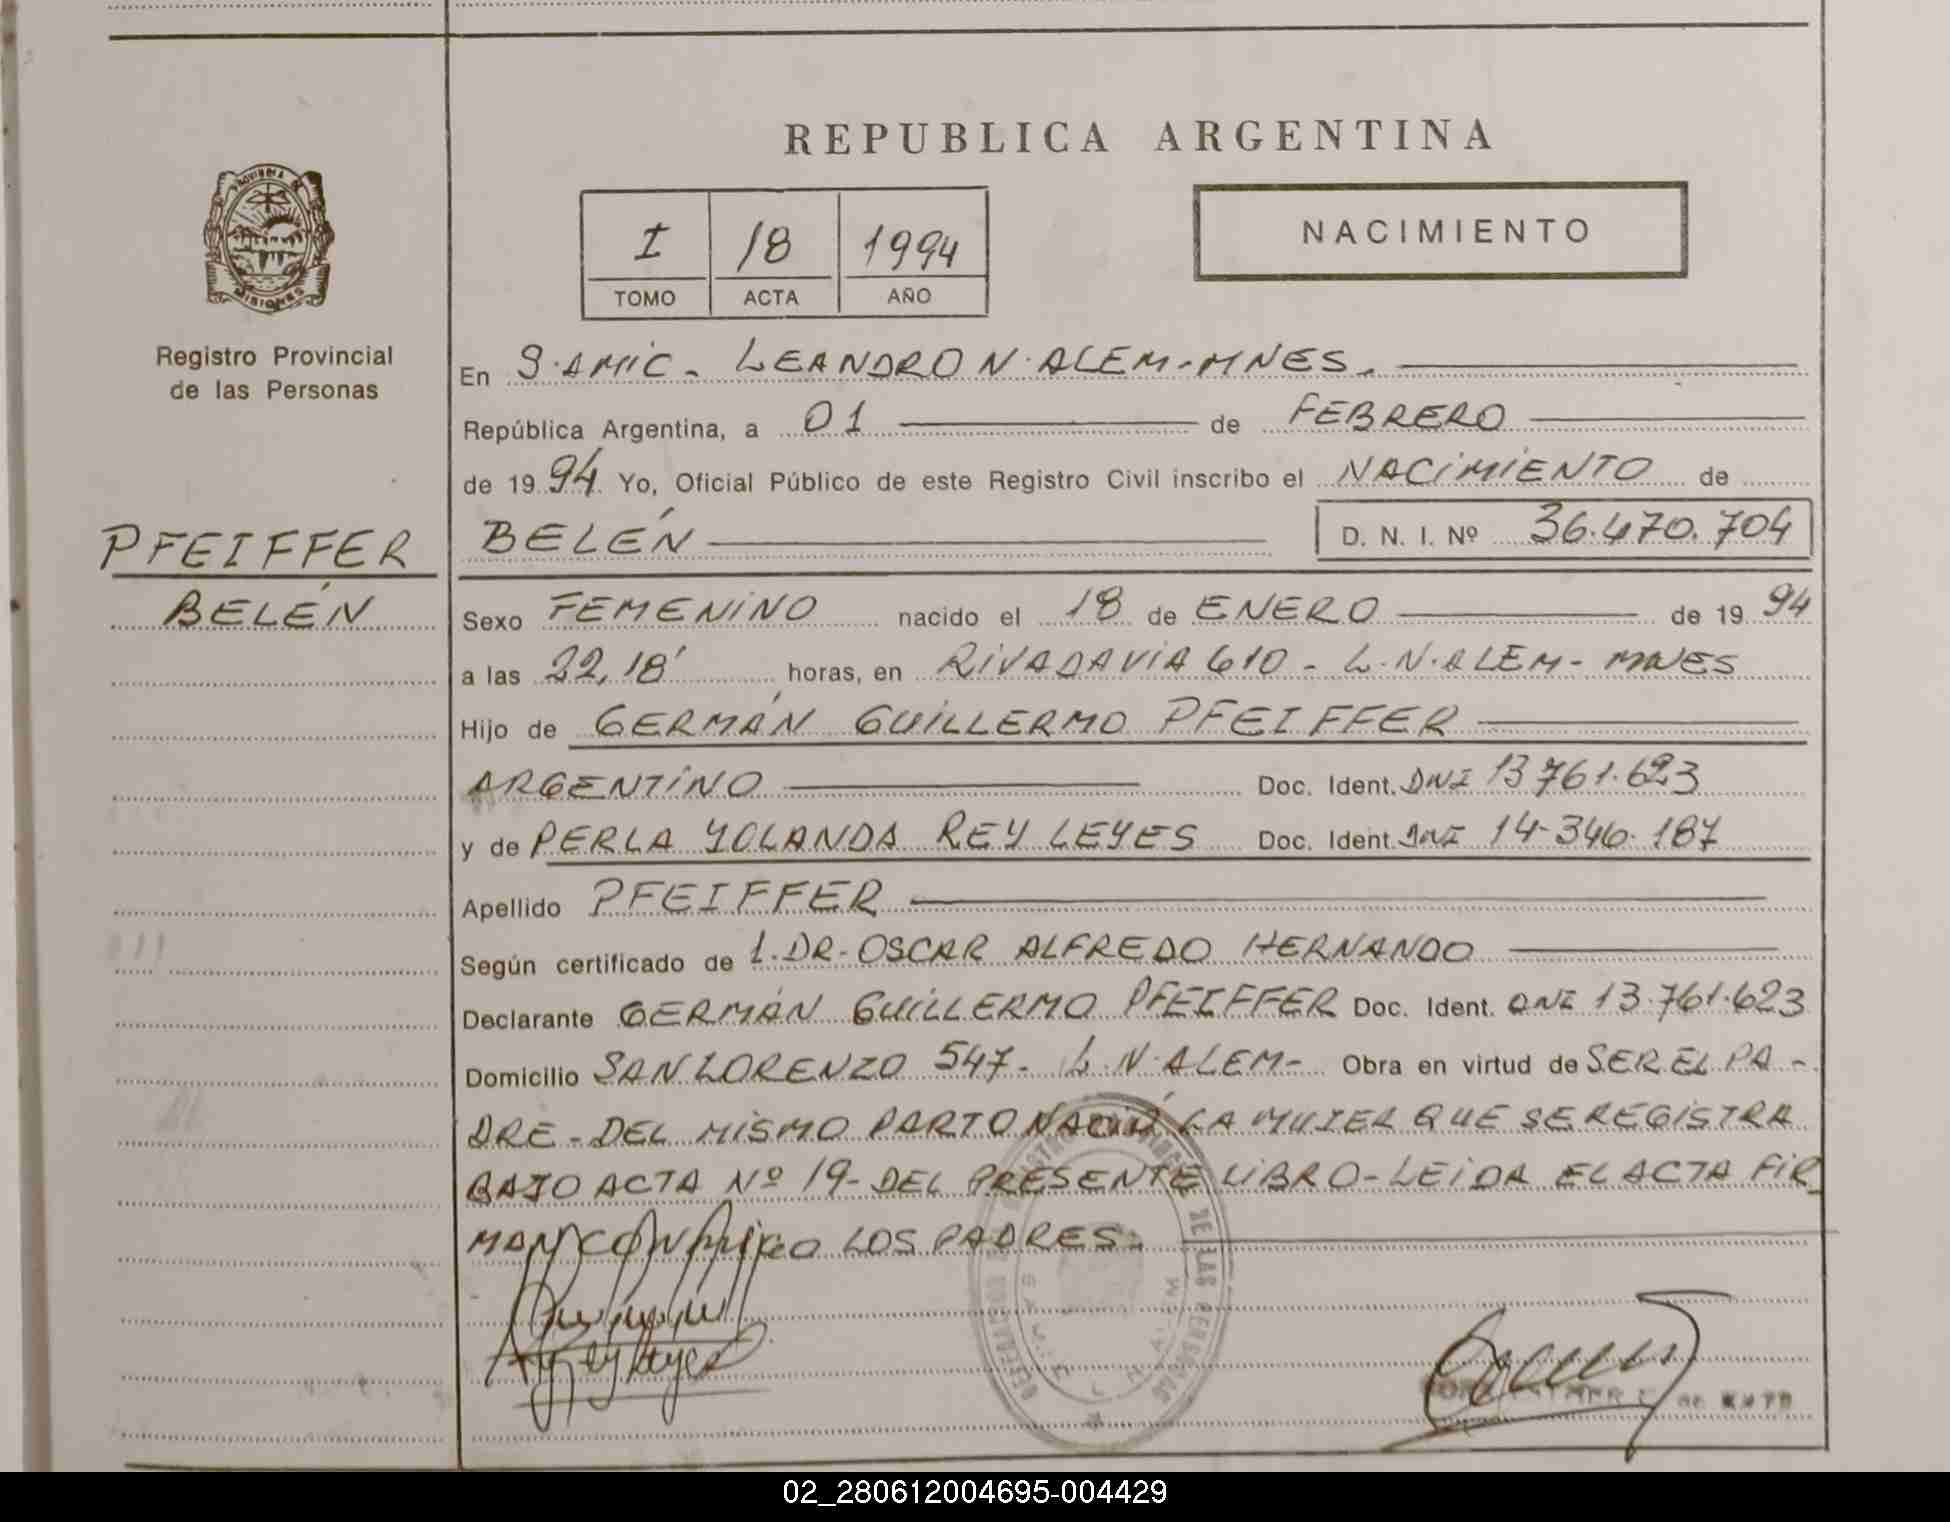 REPUBLICA ARGENTINA
I 18 1994
TOMO ACTA AÑO
NACIMIENTO
PROVINCIA DE
MISIONES
Registro Provincial
de las Personas
PFEIFFER
BELÉN
En S.AMIC. LEANDRO N. ALEM-MNES.
República Argentina, a 01 de FEBRERO
de 1994 Yo, Oficial Público de este Registro Civil inscribo el NACIMIENTO de
BELÉN D. N. I. Nº 36.470.704
Sexo FEMENINO nacido el 18 de ENERO de 19 94
a las 22,18' horas, en RIVADAVIA 610 - L.N.ALEM- MNES
Hijo de GERMÁN GUILLERMO PFEIFFER
ARGENTINO Doc. Ident. DNI 13.761.623
y de PERLA YOLANDA REY LEYES Doc. Ident. DNI 14-346.187
Apellido PFEIFFER
Según certificado de 1. DR. OSCAR ALFREDO HERNANDO
Declarante GERMÁN GUILLERMO PFEIFFER Doc. Ident. DNI 13.761.623
Domicilio SAN LORENZO 547- L.N.ALEM- Obra en virtud de SER EL PA-
DRE-DEL MISMO PARTO NACIÓ LA MUJER QUE SE REGISTRA
BAJO ACTA Nº 19-DEL PRESENTE LIBRO-LEIDA EL ACTA FIR_
MAN CONMIGO LOS PADRES.
DE LAS PERSONAS
02_280612004695-004429